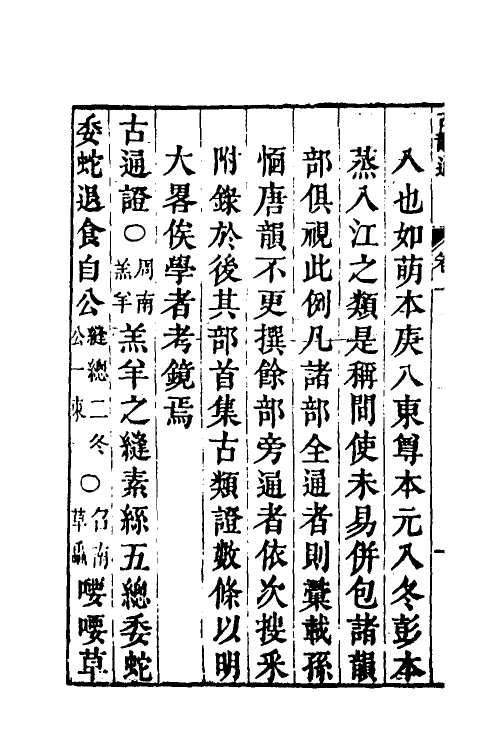 入也如萌本庚入東尊本元入冬彭本
蒸入江之類是稱間使未易併包諸韻
部俱視此例凡諸部全通者則彚載孫
愐唐韻不更撰餘部旁通者依次搜釆
附錄於後其部首集古類證數條以明
大畧俟學者考鏡焉
古通證○周南羔羊羔羊之縫素絲五總委蛇
委蛇退食自公縫總二冬公一東○召南草蟲喓喓草